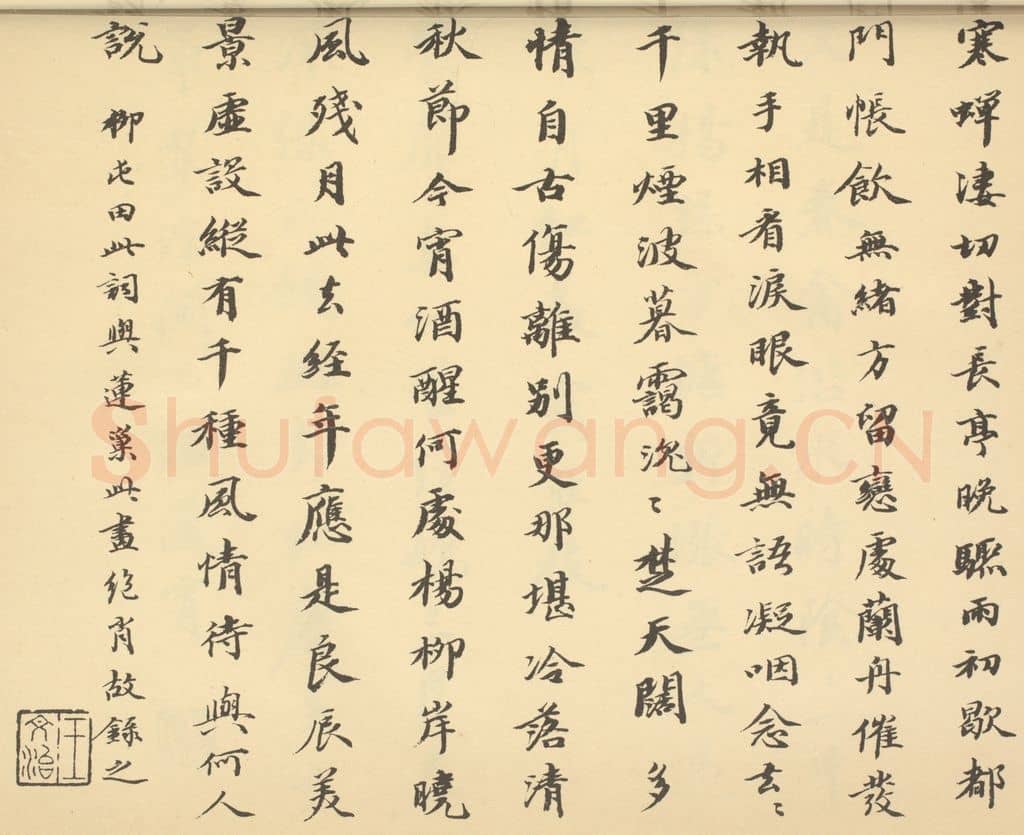 寒蟬淒切對長亭晚驟雨初歇都
門帳飲無緒方留戀處蘭舟催發
執手相看淚眼竟無語凝咽念去〻
千里煙波暮靄沉〻楚天闊多
情自古傷離別更那堪冷落清
秋節今宵酒醒何處楊柳岸曉
風殘月此去經年應是良辰美
景虛設縱有千種風情待與何人
說
柳屯田此詞與蓮巢此畫絕肖故錄之
王文治
Shufawang.CN